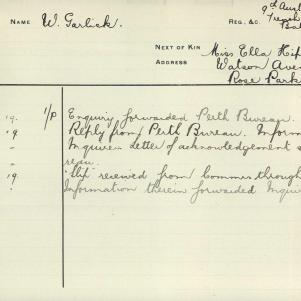 NAME W. Garlick. REG. &C. 9th Aust
NEXT OF KIN Miss Ella Hip
ADDRESS Watson Aven
Rose Park
19. 1/P Enquiry forwaded Perth Bureau.
19 Reply from Perth Bureau. Inform
" Inquirer. Letter of acknowledgement s
19 "Slip" received from Commrs through
Information therein forwarded Inquir